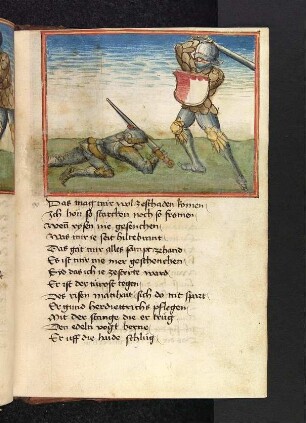 Das mag mir wol ze schaden komen
Ich hon so starcken noch so fromen
Wenn rysen nie gesenchen
Was mir ie seit hiltebrant
Das gat mir alles sampt zehand
Es ist mir nie mer geschenchen
Syd das ich ze ritter ward
Er ist der türost tegen
Des risen manhait sich do nit spart
Er gund her diettrichs pflegen
Mit der stange die er trüg
Den edeln vogt berne
Er uff die haide schlüg